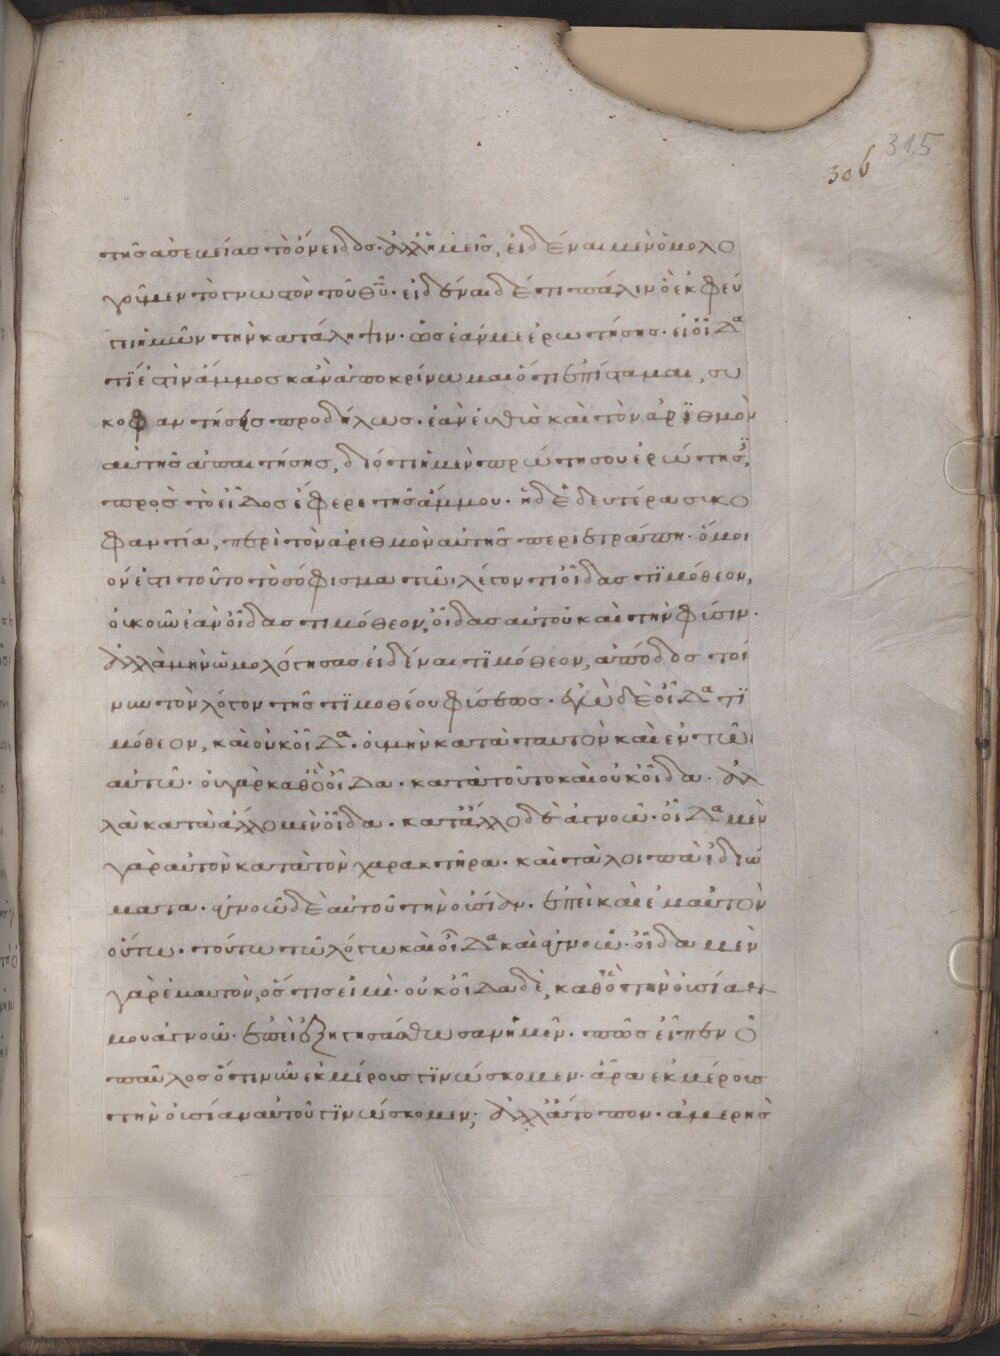 τῆς ἀσεβείας τὸ ὄνειδος· ἀλλ' ἡμεῖς, εἰδέναι μὲν ὁμολο
γοῦμεν τὸ γνωστὸν τοῦ θῦ· εἰδέναι δέ τι πάλιν ὃ ἐκφεύ
γει ἡμῶν τὴν κατάληψιν· ὡς ἐάν με ἐρωτήσης· εἰ οἶδα
τΐ ἐστὶν ἄμμος κἂν ἀποκρίνωμαι ὅτι ἐπίσταμαι, συ
κοφαντήσεις προδήλως· ἐὰν εὐθὺς καὶ τὸν ἀρϊθμὸν
αὐτῆς ἀπαιτήσης, διότι ἡ μὲν πρώτη σου ἐρώτησϊς,
πρὸς τὸ εἶδος ἔφερε τῆς ἄμμου· ἡ δὲ δευτέρα συκο
φαντία, περὶ τὸν ἀριθμὸν αὐτῆς περιετράπη· ὅμοι
όν ἐστι τοῦτο τὸ σόφισμα τῶ λέγοντι οἶδας τϊμόθεον,
οὐκοῦν ἐὰν οἶδας τιμόθεον, οἶδας αὐτοῦ καὶ τὴν φύσιν·
ἀλλὰ μὴν ὡμολόγησας εἰδέναι τϊμόθεον, ἀπόδος τοί
νυν τὸν λόγον τῆς τϊμοθέου φύσεως· ἐγὼ δὲ οἶδα τϊ
μόθεον, καὶ οὐκ οἶδα· οὐ μὴν κατὰ ταυτὸν καὶ ἐν τῶ
αὐτῶ· οὐ γὰρ καθὸ οἶδα· κατὰ τοῦτο καὶ οὐκ οἶδα· ἀλ
λὰ κατὰ ἄλλο μὲν οἶδα· κατ' ἄλλο δὲ ἀγνοῶ· οἶδα μὲν
γὰρ αὐτὸν κατὰ τὸν χαρακτῆρα· καὶ τὰ λοιπὰ ἰδιώ
ματα· ἀγνοῶ δὲ αὐτοῦ τὴν οὐσίαν· ἐπεὶ καὶ ἐμαυτὸν
οὕτω· τούτω τῶ λόγω καὶ οἶδα καὶ ἀγνοῶ· οἶδα μὲν
γὰρ ἐμαυτὸν, ὅστις εἰμὶ· οὐκ οἶδα δὲ, καθὸ τὴν οὐσίαν
μου ἀγνοῶ· ἐπεὶ ἐξηγησάσθωσαν ἡμῖν· πῶς εἶπεν ὁ
παῦλος ὅτι νῦν ἐκ μέρους γϊνώσκομεν· ἆρα ἐκ μέρους
τὴν οὐσίαν αὐτοῦ γϊνώσκομεν; ἀλλ' ἄτοπον· ἀμερὴς
306
315